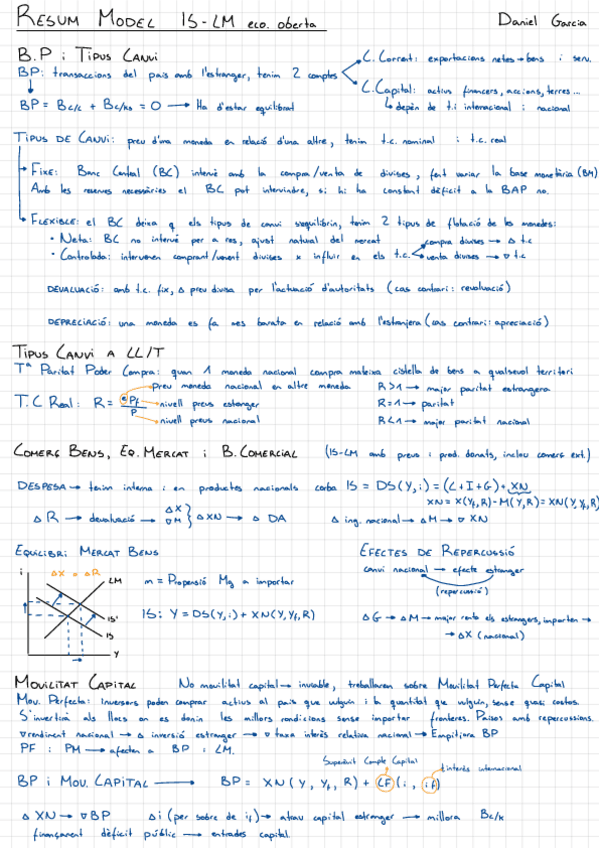 RESUM MODEL IS-LM eco. oberta Daniel Garcia
B.P i TIPUS CANVI
BP: transaccions del país amb l'estranger, tenim 2 comptes
C. Corrent: exportacions netes → bens i serv.
C. Capital: actius financers, accions, terres...
depèn de t.i internacional i nacional
BP = Bc/c + Bc/ks = 0 → Ha d'estar equilibrat
TIPUS DE CANVI: preu d'una moneda en relació d'una altre, tenim t.c. nominal i t.c. real
FIXE: Banc Central (BC) intervé amb la compra/venta de divises, fent variar la base monetària (BM)
Amb les reserves necessàries el BC pot intervindre, si hi ha constant dèficit a la BAP no.
FLEXIBLE: el BC deixa q els tipus de canvi s'equilibrin, tenim 2 tipus de flotació de les monedes:
• Neta: BC no intervé per a res, ajust natural del mercat
• Controlada: intervenen comprant/venent divises x influir en els t.c.
compra divises → Δ t.c
venta divises → ∇ t.c
DEVALUACIÓ: amb t.c. fix, Δ preu divisa per l'actuació d'autoritats (cas contrari: revaluació)
DEPRECIACIÓ: una moneda es fa mes barata en relació amb l'estranjera (cas contrari: apreciació)
TIPUS CANVI A LL/T
Tª Paritat Poder Compra: quan 1 moneda nacional compra mateixa cistella de bens a qualsevol territori
T.C REAL: R = ePf / P
preu moneda nacional en altre moneda
nivell preus estanger
nivell preus nacional
R>1 → major paritat estrangera
R=1 → paritat
R<1 → major paritat nacional
COMERÇ BENS, EQ. MERCAT i B. COMERCIAL (IS-LM amb preus i prod. donats, inclou comerç ext.)
DESPESA → tenim interna i en productes nacionals corba IS = DS(Y,i) = (C+I+G) + XN
XN = X(Yf,R) - M(Y,R) = XN(Y,Yf,R)
Δ R → devaluació → ΔX ∇M } ΔXN → Δ DA
Δ ing. nacional → ΔM → ∇ XN
EQUILIBRI MERCAT BENS
EFECTES DE REPERCUSSIÓ
i
ΔX = ΔR
LM
IS'
IS
Y
m = Propensió Mg a importar
IS: Y = DS(Y,i) + XN(Y,Yf,R)
canvi nacional → efecte estranger
(repercussió)
ΔG → ΔM → major renta els estrangers, importen →
→ ΔX (nacional)
MOVILITAT CAPITAL No movilitat capital → inviable, treballarem sobre Movilitat Perfecta Capital
Mov. Perfecta: Inversors poden comprar actius al país que vulguin i la quantitat que vulguin, sense quasi costos.
S'invertirà als llocs on es donin les millors condicions sense importar fronteres. Països amb repercussions.
∇rendiment nacional → Δ inversió estranger → ∇ taxa interès relativa nacional → Empitjora BP
PF i PM → afecten a BP i LM.
Superàvit Compte Capital
t.interés internacional
BP i MOV. CAPITAL → BP = XN (Y, Yf, R) + CF (i, if)
Δ XN → ∇ BP Δi (per sobre de if) → atrau capital estranger → millora Bc/k
finançament dèficit públic → entrades capital.